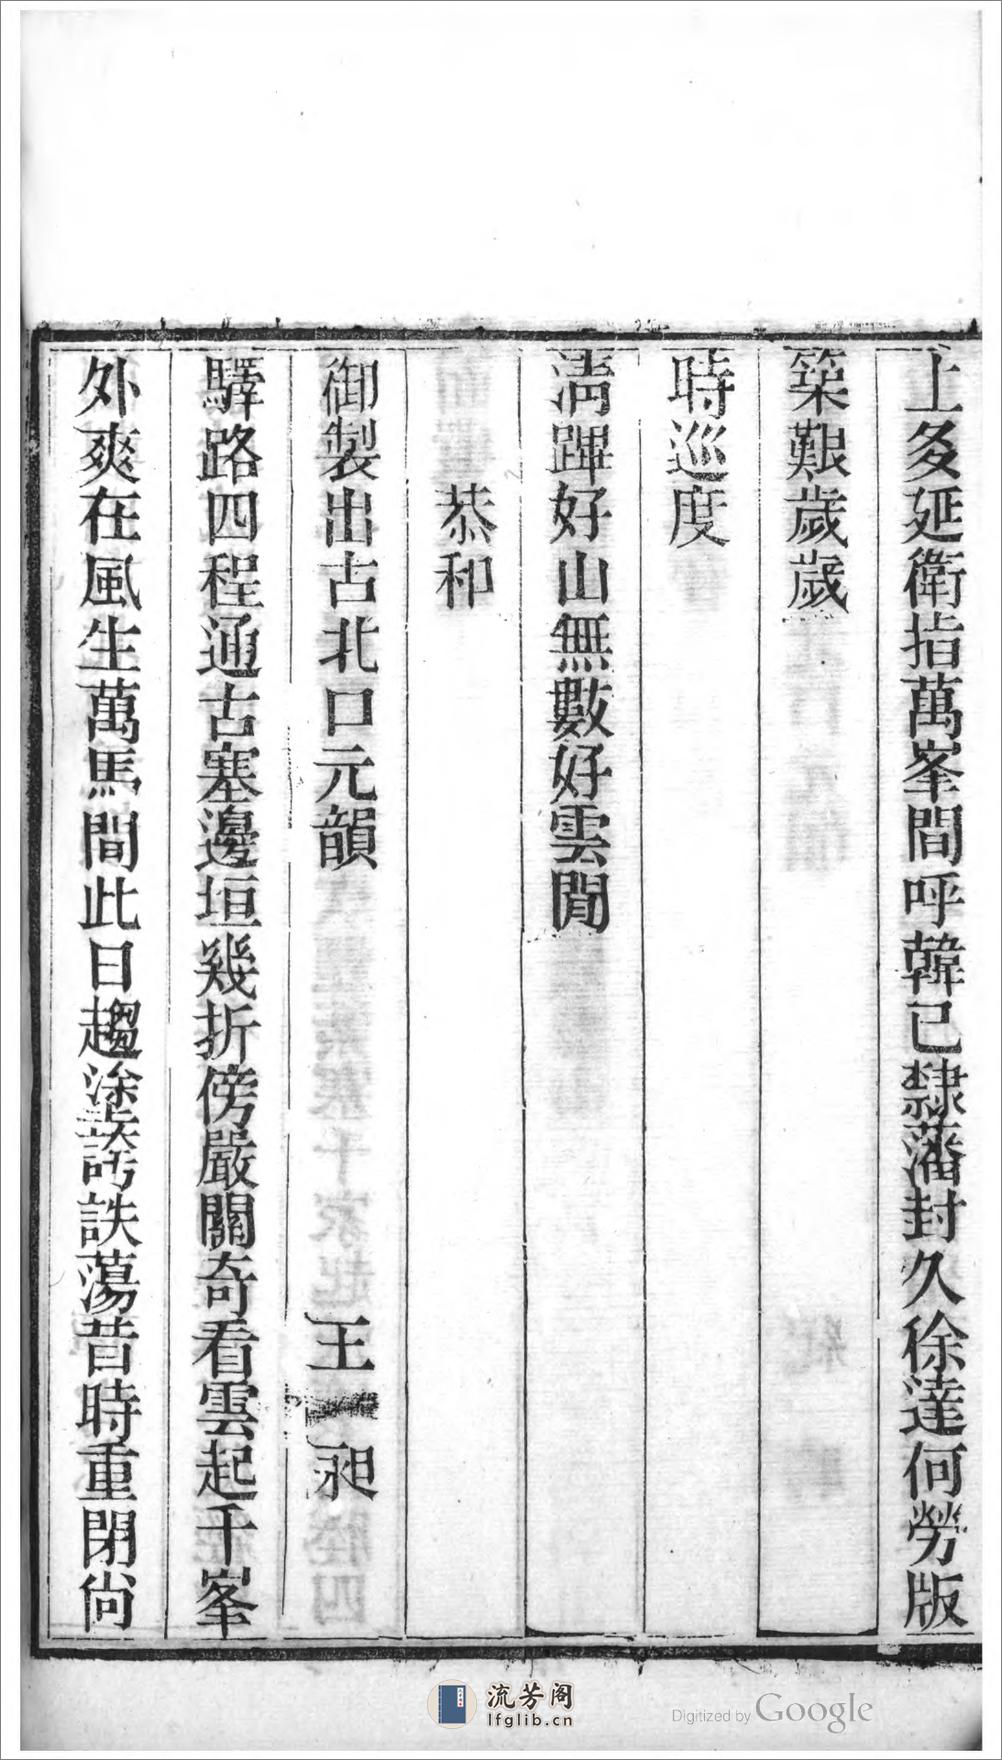 上多延衛指萬峯間呼韓已隸藩封久徐達何勞版
築艱歲歲
時巡度
淸蹕好山無數好雲閒
恭和
御製出古北口元韻
王昶
驛路四程通古塞邊垣幾折傍嚴關奇看雲起千峯
外爽在風生萬馬間此日趨塗誇詄蕩昔時重閉尙
流芳阁
lfglib.cn
Digitized by Google